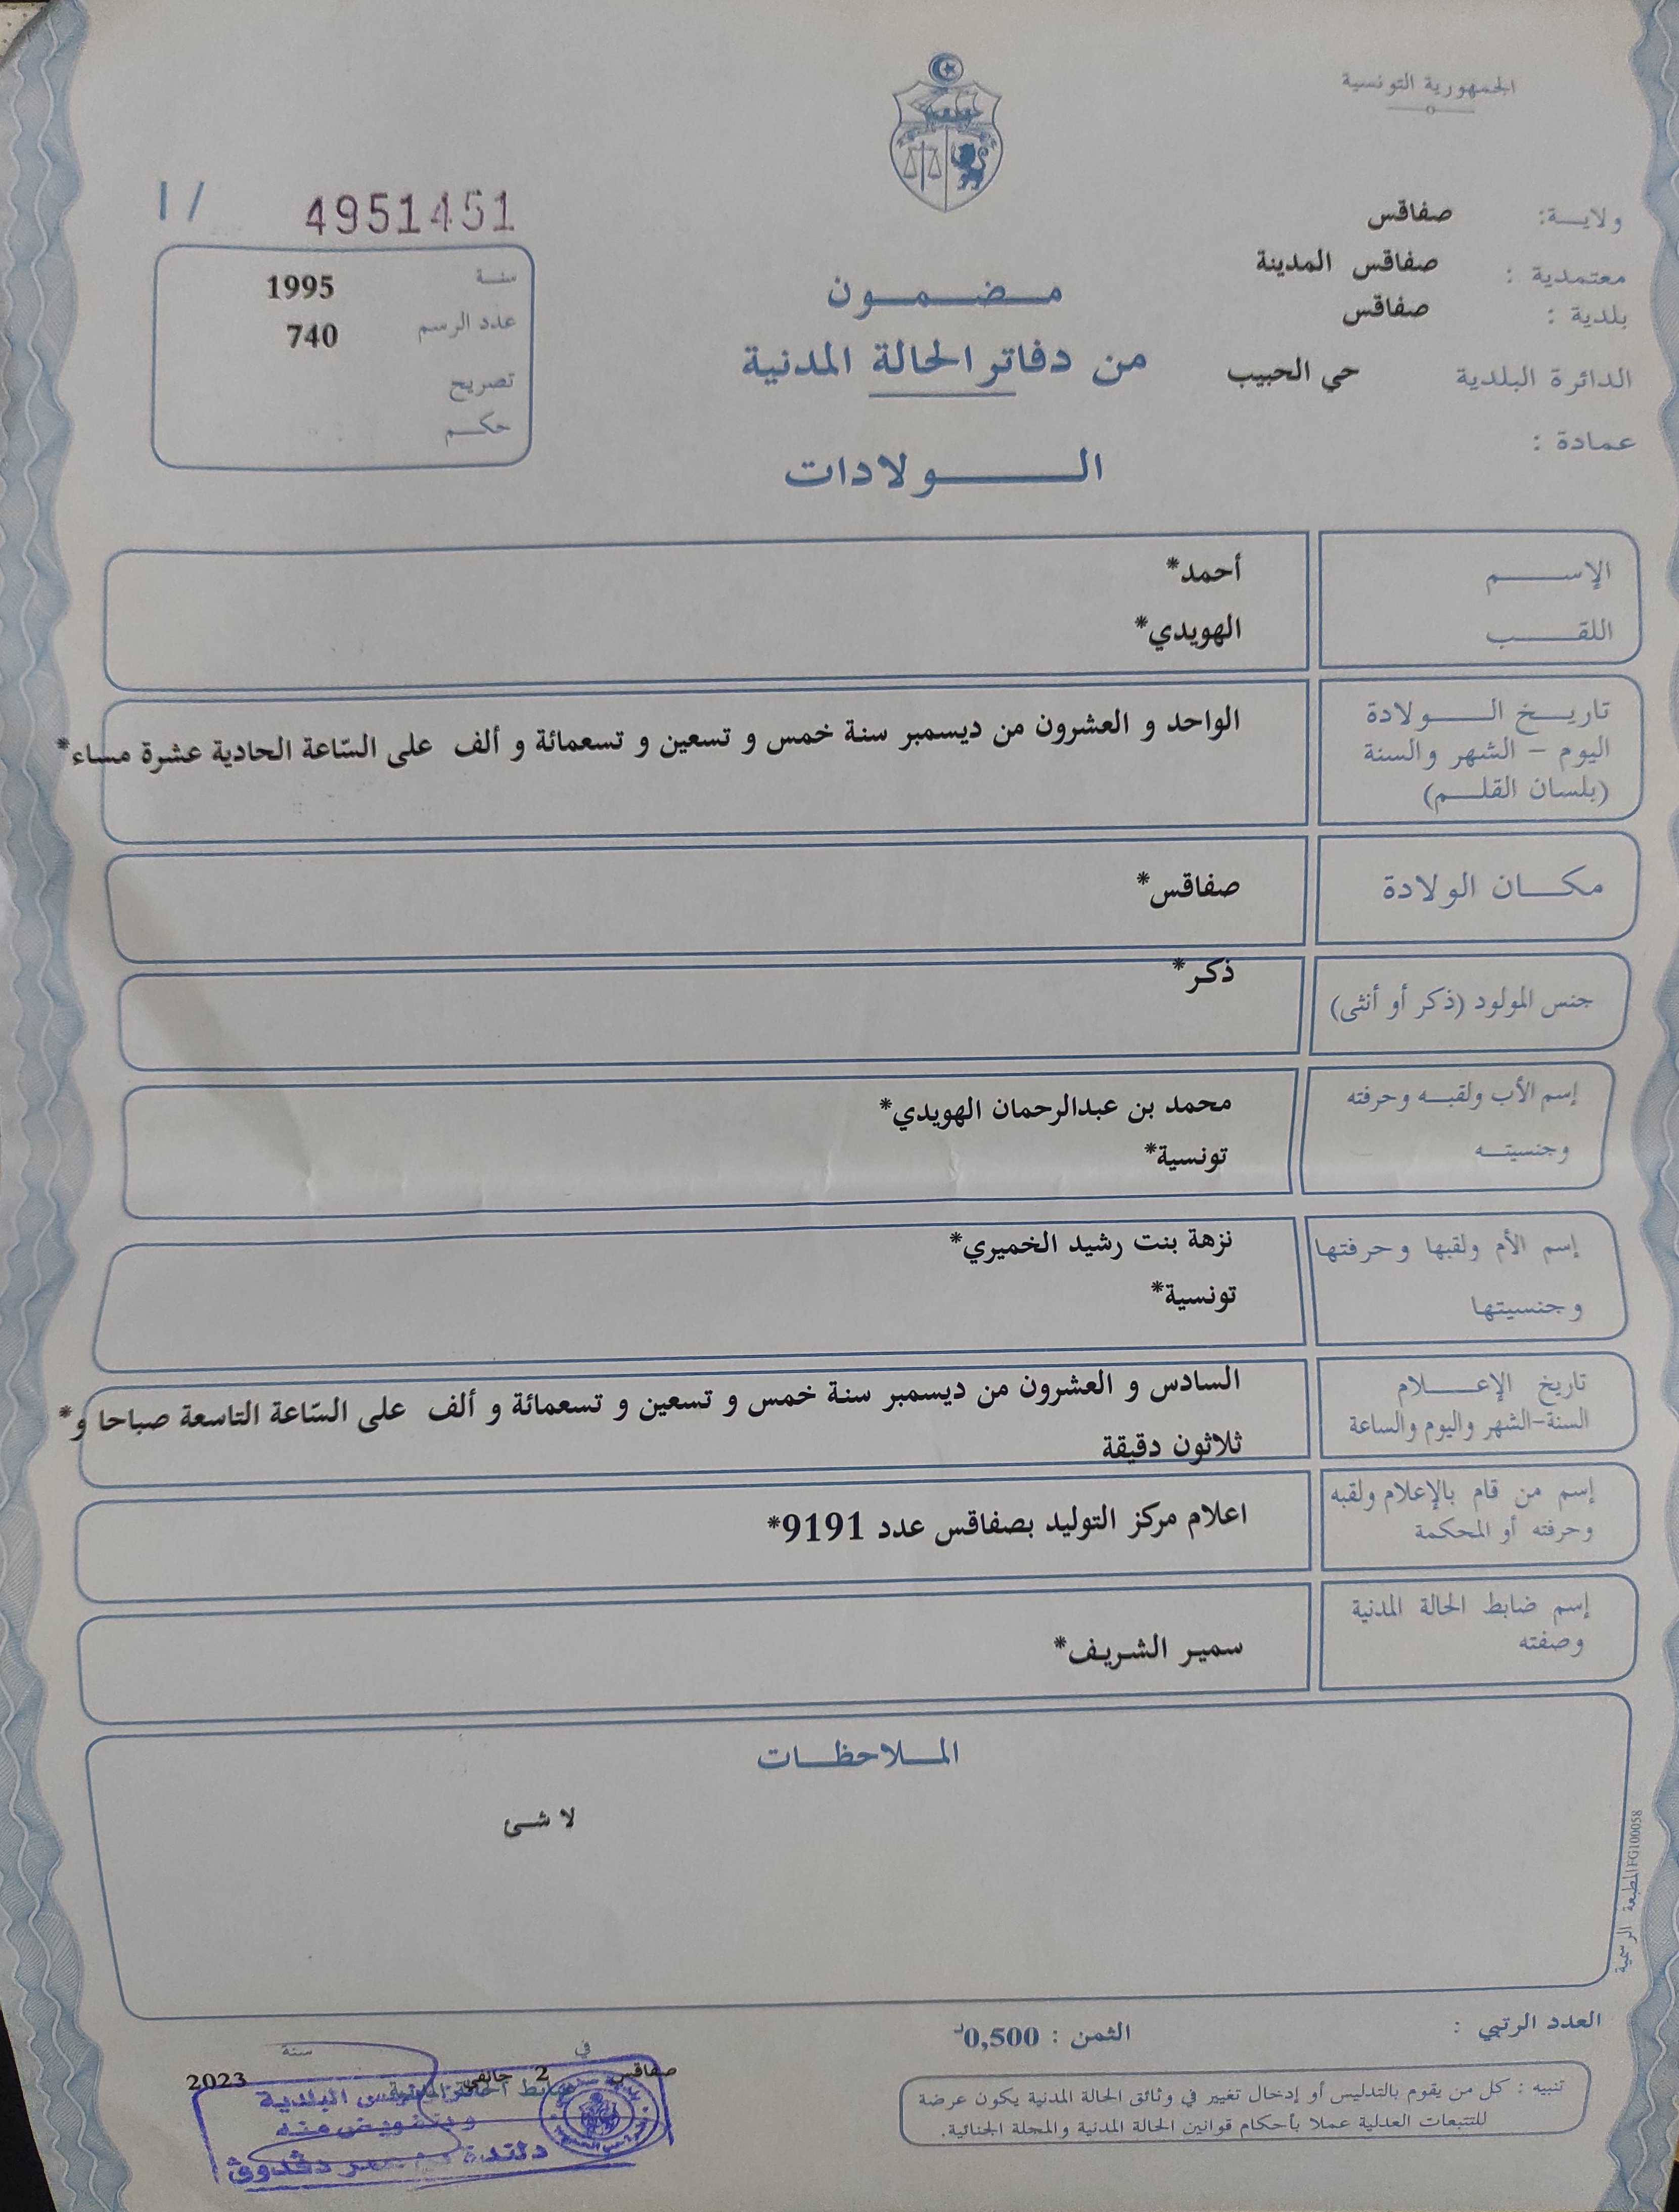 الجمهورية التونسية
ولاية: صفاقس
معتمدية : صفاقس المدينة
بلدية : صفاقس
الدائرة البلدية حي الحبيب
عمادة :
مضمون
من دفاتر الحالة المدنية
الولادات
4951451
سنة 1995
عدد الرسم 740
تصريح
حكم
الإسم أحمد*
اللقب الهويدي*
تاريخ الولادة
اليوم - الشهر والسنة
(بلسان القلم)
الواحد و العشرون من ديسمبر سنة خمس و تسعين و تسعمائة و ألف على السّاعة الحادية عشرة مساء*
مكان الولادة صفاقس*
جنس المولود (ذكر أو أنثى) ذكر*
إسم الأب ولقبه وحرفته محمد بن عبدالرحمان الهويدي*
وجنسيته تونسية*
إسم الأم ولقبها وحرفتها نزهة بنت رشيد الخميري*
وجنسيتها تونسية*
تاريخ الإعلام
السنة-الشهر واليوم والساعة
السادس و العشرون من ديسمبر سنة خمس و تسعين و تسعمائة و ألف على السّاعة التاسعة صباحا و*
ثلاثون دقيقة
إسم من قام بالإعلام ولقبه
وحرفته أو المحكمة
اعلام مركز التوليد بصفاقس عدد 9191*
إسم ضابط الحالة المدنية
وصفته
سمير الشريف*
الملاحظات
لا شئ
المطبعة الرسمية FG100058
العدد الرتبي :
الثمن : 0,500د
تنبيه : كل من يقوم بالتدليس أو إدخال تغيير في وثائق الحالة المدنية يكون عرضة
للتتبعات العدلية عملا بأحكام قوانين الحالة المدنية والمجلة الجنائية.
صفاقس في 2 جانفي سنة 2023
ضابط الحالة المدنية
البلدية
وبتفويض منه